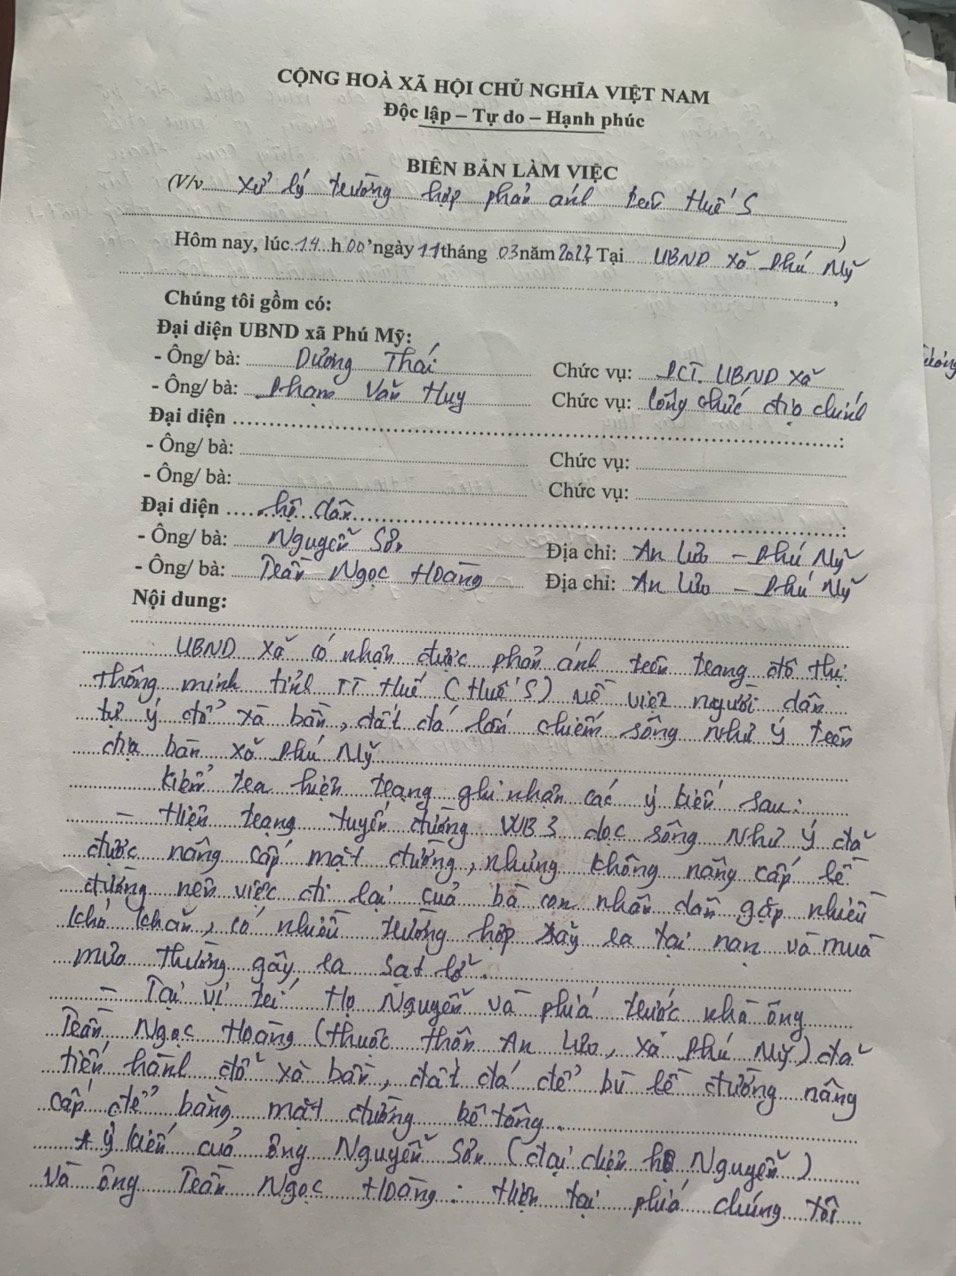 CỘNG HOÀ XÃ HỘI CHỦ NGHĨA VIỆT NAM
Độc lập – Tự do – Hạnh phúc
BIÊN BẢN LÀM VIỆC
(V/v xử lý trường hợp phản ánh trên Huế S
)
Hôm nay, lúc 14 h 00' ngày 11 tháng 03 năm 2022 Tại UBND xã Phú Mỹ
,
Chúng tôi gồm có:
Đại diện UBND xã Phú Mỹ:
- Ông/ bà: Dương Thái Chức vụ: PCT. UBND xã
- Ông/ bà: Phạm Văn Huy Chức vụ: Công chức địa chính
Đại diện :
- Ông/ bà: Chức vụ:
- Ông/ bà: Chức vụ:
Đại diện hộ dân :
- Ông/ bà: Nguyễn Sơn Địa chỉ: An Lưu - Phú Mỹ
- Ông/ bà: Trần Ngọc Hoàng Địa chỉ: An Lưu - Phú Mỹ
Nội dung:
UBND xã có nhận được phản ánh trên trang đô thị
thông minh tỉnh TT Huế (Huế S) về việc người dân
tự ý đổ xà bần, đất đá lấn chiếm sông Như Ý trên
địa bàn xã Phú Mỹ
Kiểm tra hiện trạng ghi nhận các ý kiến sau:
- Hiện trạng tuyến đường WB3 dọc sông Như Ý đã
được nâng cấp mặt đường, nhưng không nâng cấp lề
đường nên việc đi lại của bà con nhân dân gặp nhiều
khó khăn, có nhiều trường hợp xảy ra tai nạn và mùa
mưa thường gây ra sạt lở.
- Tại vị trí Họ Nguyễn và phía trước nhà ông
Trần Ngọc Hoàng (thuộc thôn An Lưu, xã Phú Mỹ) đã
tiến hành đổ xà bần, đất đá để bù lề đường nâng
cấp để bằng mặt đường bê tông.
* ý kiến của ông Nguyễn Sơn (đại diện họ Nguyễn)
và ông Trần Ngọc Hoàng: Hiện tại phía chúng tôi